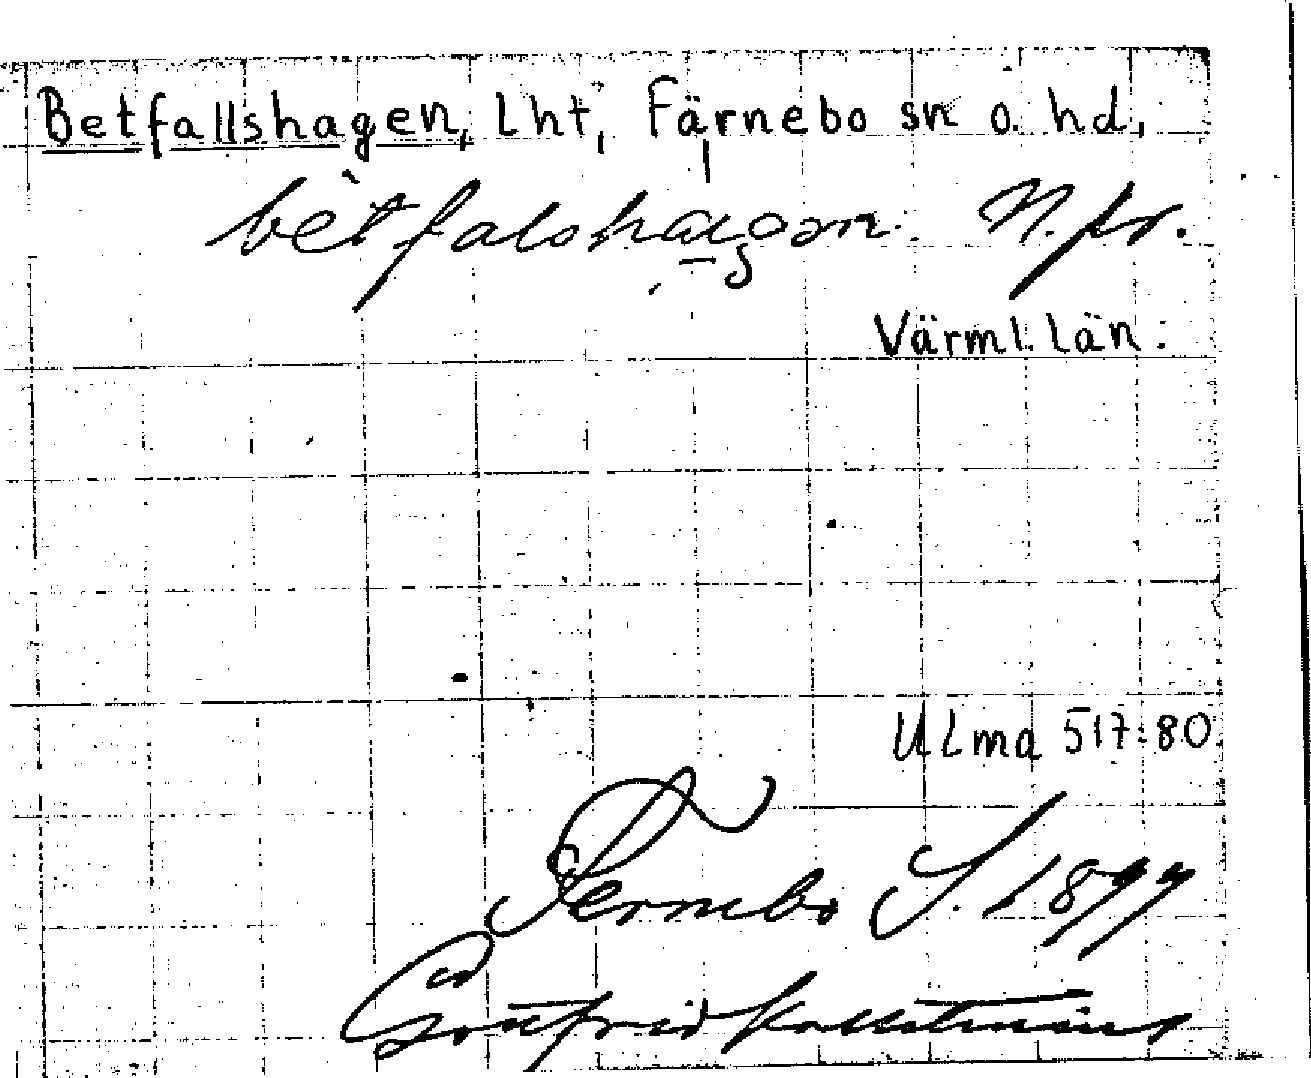 Betfallshagen, Lht, Färnebo sn o. hd,
bètfalshagən. N. fr.
Värml. län.
ULma 517:80
Fernebo S. 1899
Gottfrid Kallstenius